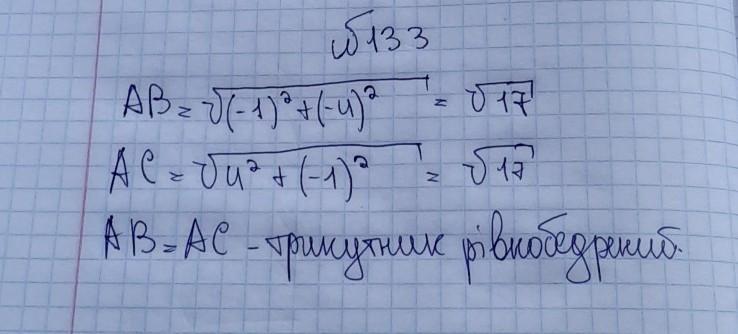 №133
AB = √(-1)² + (-4)² = √17
AC = √4² + (-1)² = √17
AB = AC - трикутник рівнобедрений.